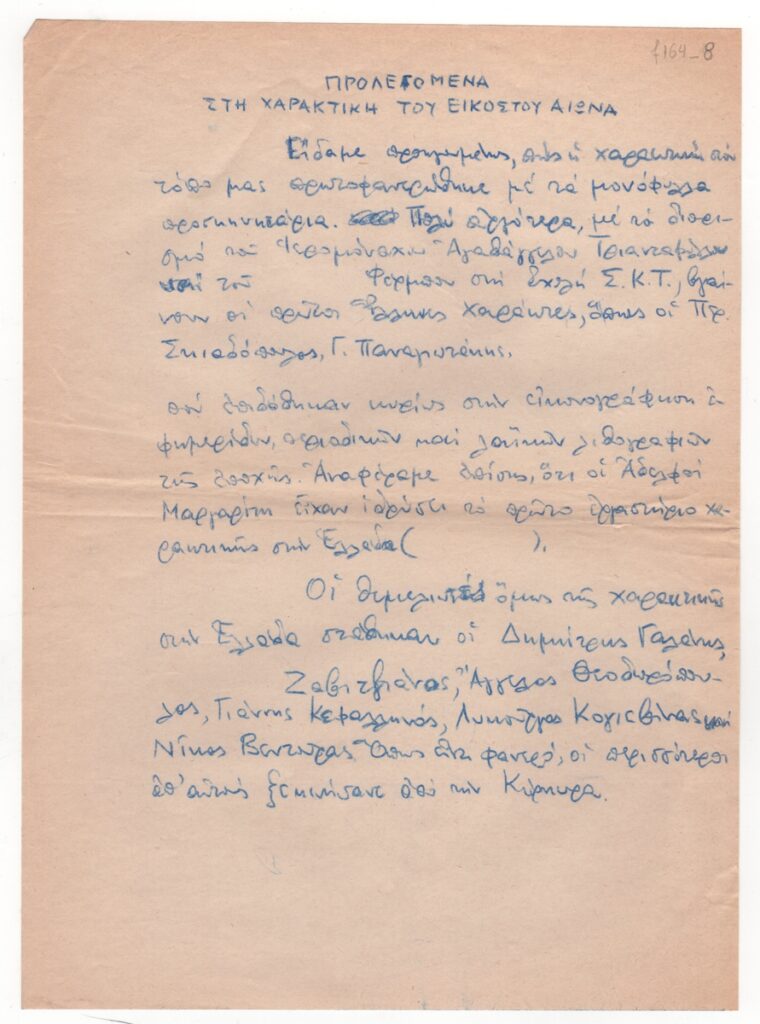 f164_8
ΠΡΟΛΕΓΟΜΕΝΑ
ΣΤΗ ΧΑΡΑΚΤΙΚΗ ΤΟΥ ΕΙΚΟΣΤΟΥ ΑΙΩΝΑ
Εἴδαμε προηγουμένως, πὼς ἡ χαρακτικὴ στὸν
τόπο μας πρωτοφανερώθηκε μέ τά μονόφυλλα
προσκηνητάρια. Πολύ ἀργότερα, μέ τό διορι-
σμό τοῦ Ἱερομόναχου Ἀγαθάγγελου Τριανταφύλλου
καί τοῦ Φέρμπου στή Σχολή Σ.Κ.Τ., βγαί-
νουν οἱ πρῶτοι Ἕλληνες χαράκτες, ὅπως οἱ
Σκιαδόπουλος, Γ. Παναγιωτάκης.
πού ἐπιδόθηκαν κυρίως στήν εἰκονογράφηση ἐ-
φημερίδων, περιοδικῶν καί λαϊκῶν λιθογραφιῶν
τῆς ἐποχῆς. Ἀναφέραμε ἐπίσης, ὅτι οἱ Ἀδελφοί
Μαργαρίτη εἶχαν ἱδρύσει τό πρῶτο ἐργαστήριο χα-
ρακτικῆς στήν Ἑλλάδα ( ).
Οἱ θεμελιωτές ὅμως τῆς χαρακτικῆς
στήν Ἑλλάδα στάθηκαν οἱ Δημήτρης Γαλάνης,
Ζαβιτζιάνος, Ἄγγελος Θεοδωρόπου-
λος, Γιάννης Κεφαλληνός, Λυκοῦργος Κογεβίνας καί
Νίκος Βεντούρας. Ὅπως εἶναι φανερό, οἱ περισσότεροι
ἀπ' αὐτούς ξεκινήσανε ἀπό τήν Κέρκυρα.